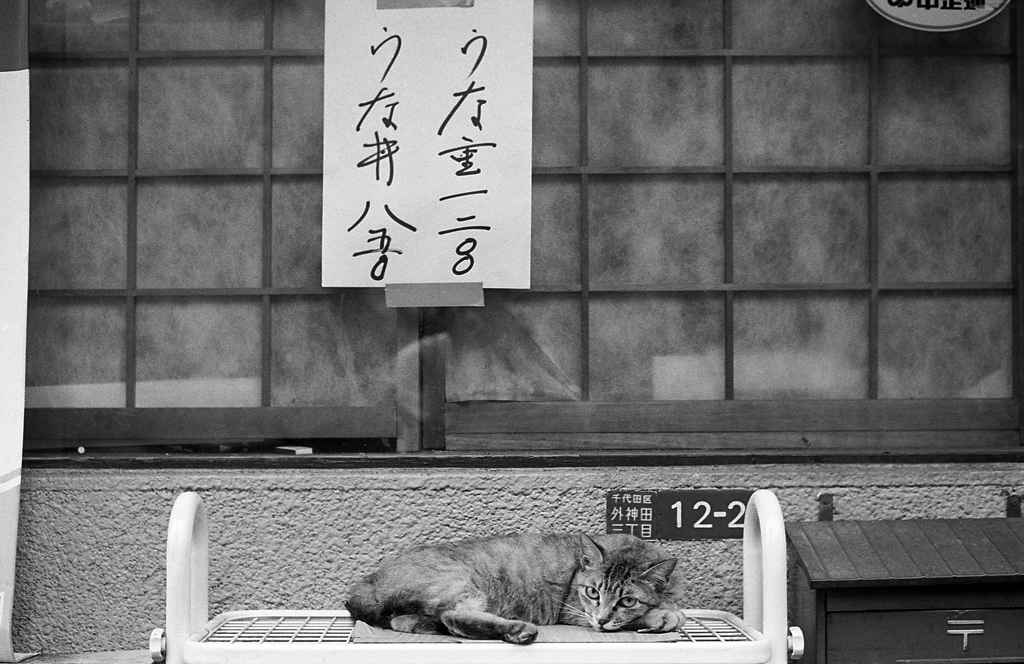 うな重一二〇〇
うな丼 八五〇
千代田区
外神田
三丁目
12-2
〒